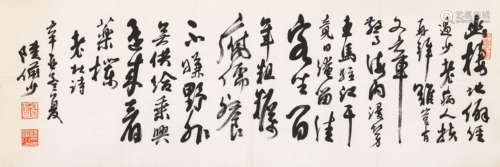 幽棲地僻經
過少老病人扶
再拜難豈有
文章
驚海內漫勞
車馬駐江干
竟日淹留佳
客坐百
年粗糲
腐儒餐
不嫌野外
無供給乘興
還來看
藥欄
老杜詩
辛孟夏
陸儼少